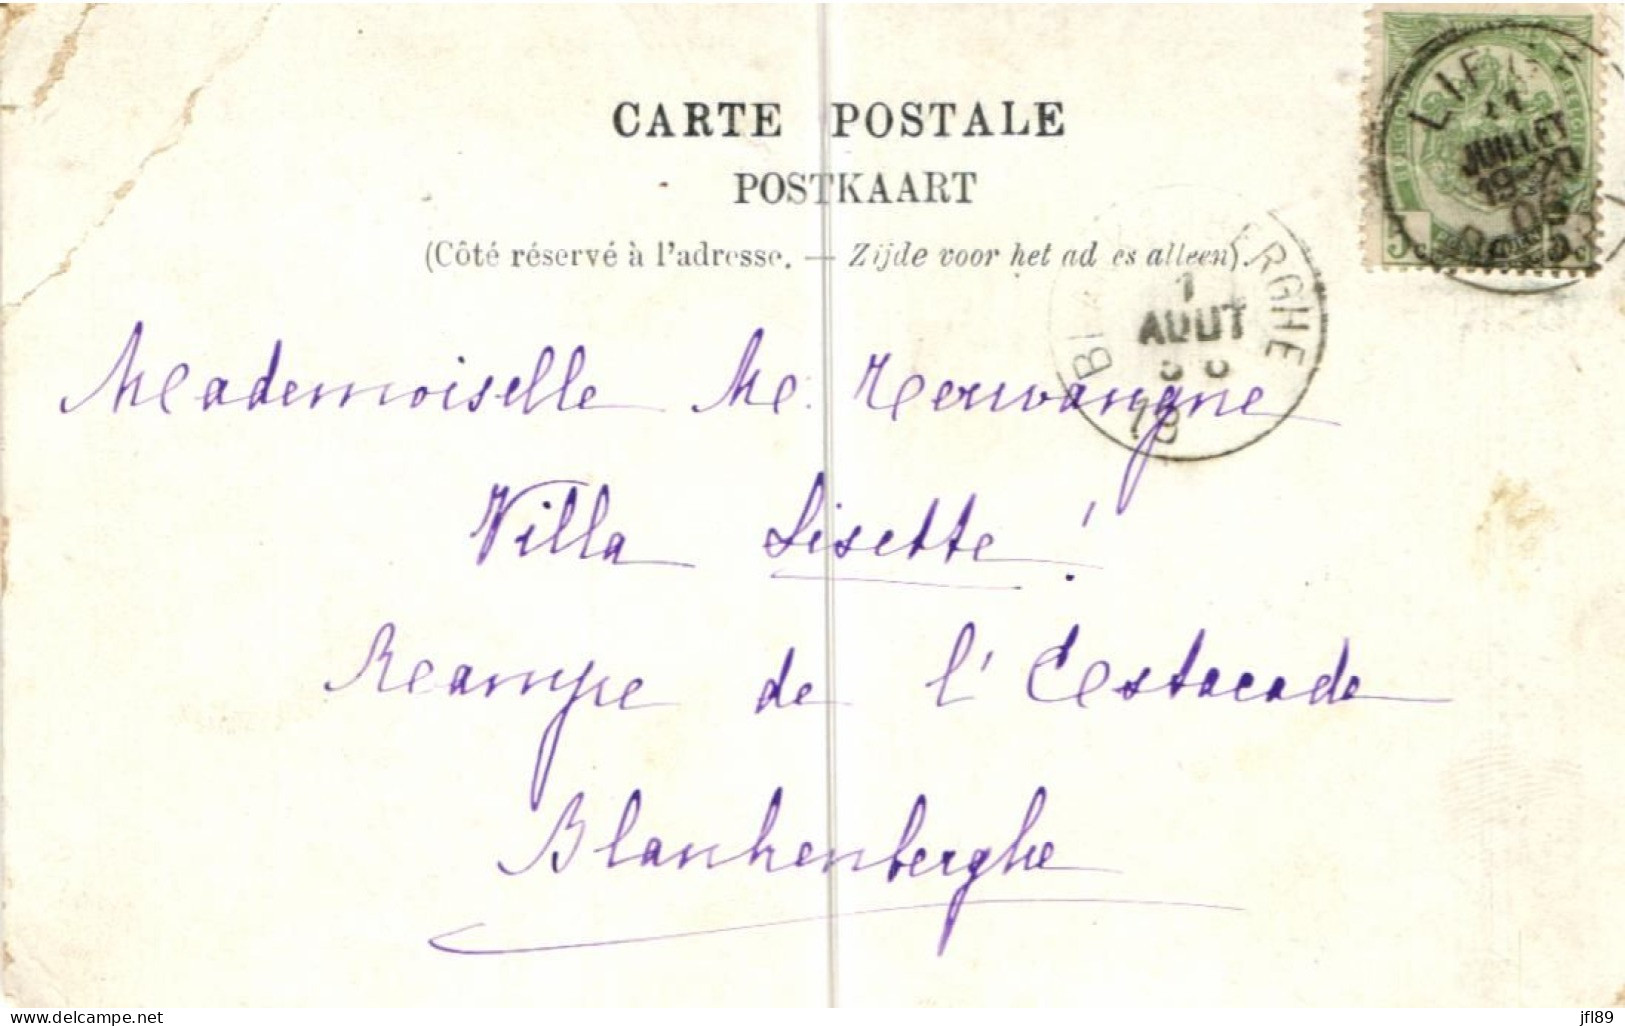 CARTE POSTALE
POSTKAART
(Côté réservé à l'adresse. — Zijde voor het ad es alleen).
JUILLET
19-20
ERGHE
1
AOUT
Mademoiselle M. Terwangne
Villa Lisette!
Rampe de l'Estacade
Blankenberghe
www.delcampe.net
jfl89